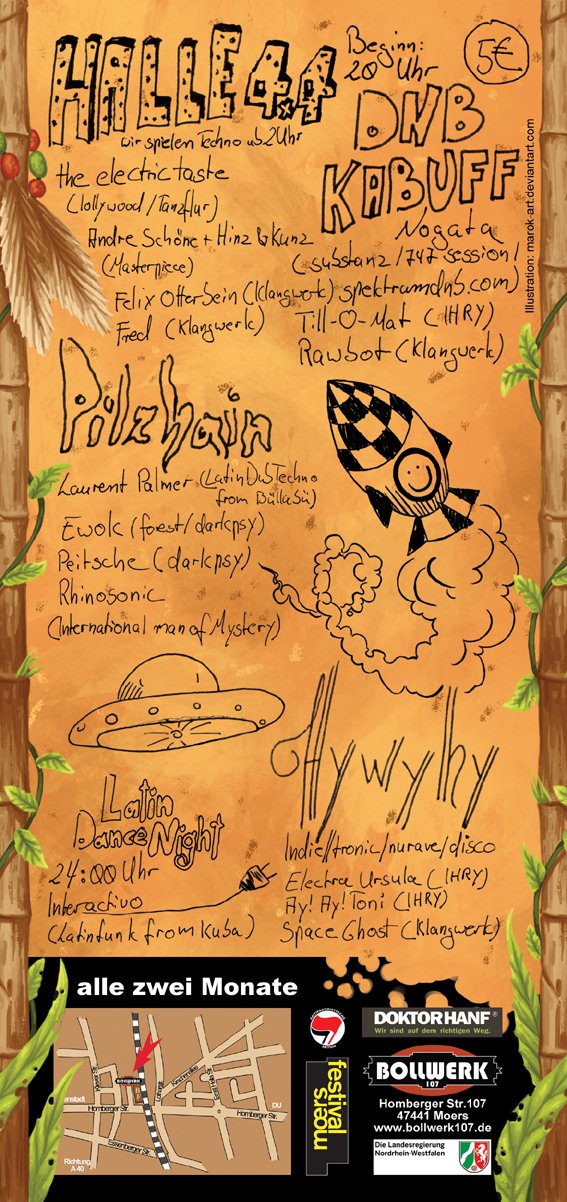 HALLE 4x4
wir spielen Techno ab 2 Uhr
the electric taste
(lollywood / Tanzflur)
Andre Schöne + Hinz & Kunz
(Masterpiece)
Felix Otterbein (Klangwerk)
Fred (Klangwerk)
Beginn:
20 Uhr
5€
DNB
KABUFF
Nogata
(substanz / 747 session /
spektrumdnb.com)
Till-O-Mat (IHRY)
Rawbot (Klangwerk)
Illustration: marok-art.deviantart.com
Pilzhain
Laurent Palmer (LatinDubTechno
from BüllaBü)
Ewok (forest/darkpsy)
Peitsche (darkpsy)
Rhinosonic
(International man of Mystery)
Latin
Dance Night
24:00 Uhr
Interactivo
(Latinfunk from Kuba)
Hywyhy
Indie//tronic/nurave/disco
Electra Ursula (IHRY)
Ay! Ay! Toni (IHRY)
Space Ghost (Klangwerk)
alle zwei Monate
BOLLWERK
Homberger Str.
Homberger Str.
Essenberger Str.
DU
Richtung
A 40
moers
festival
DOKTORHANF®
Wir sind auf dem richtigen Weg.
BOLLWERK
107
Homberger Str.107
47441 Moers
www.bollwerk107.de
Die Landesregierung
Nordrhein-Westfalen